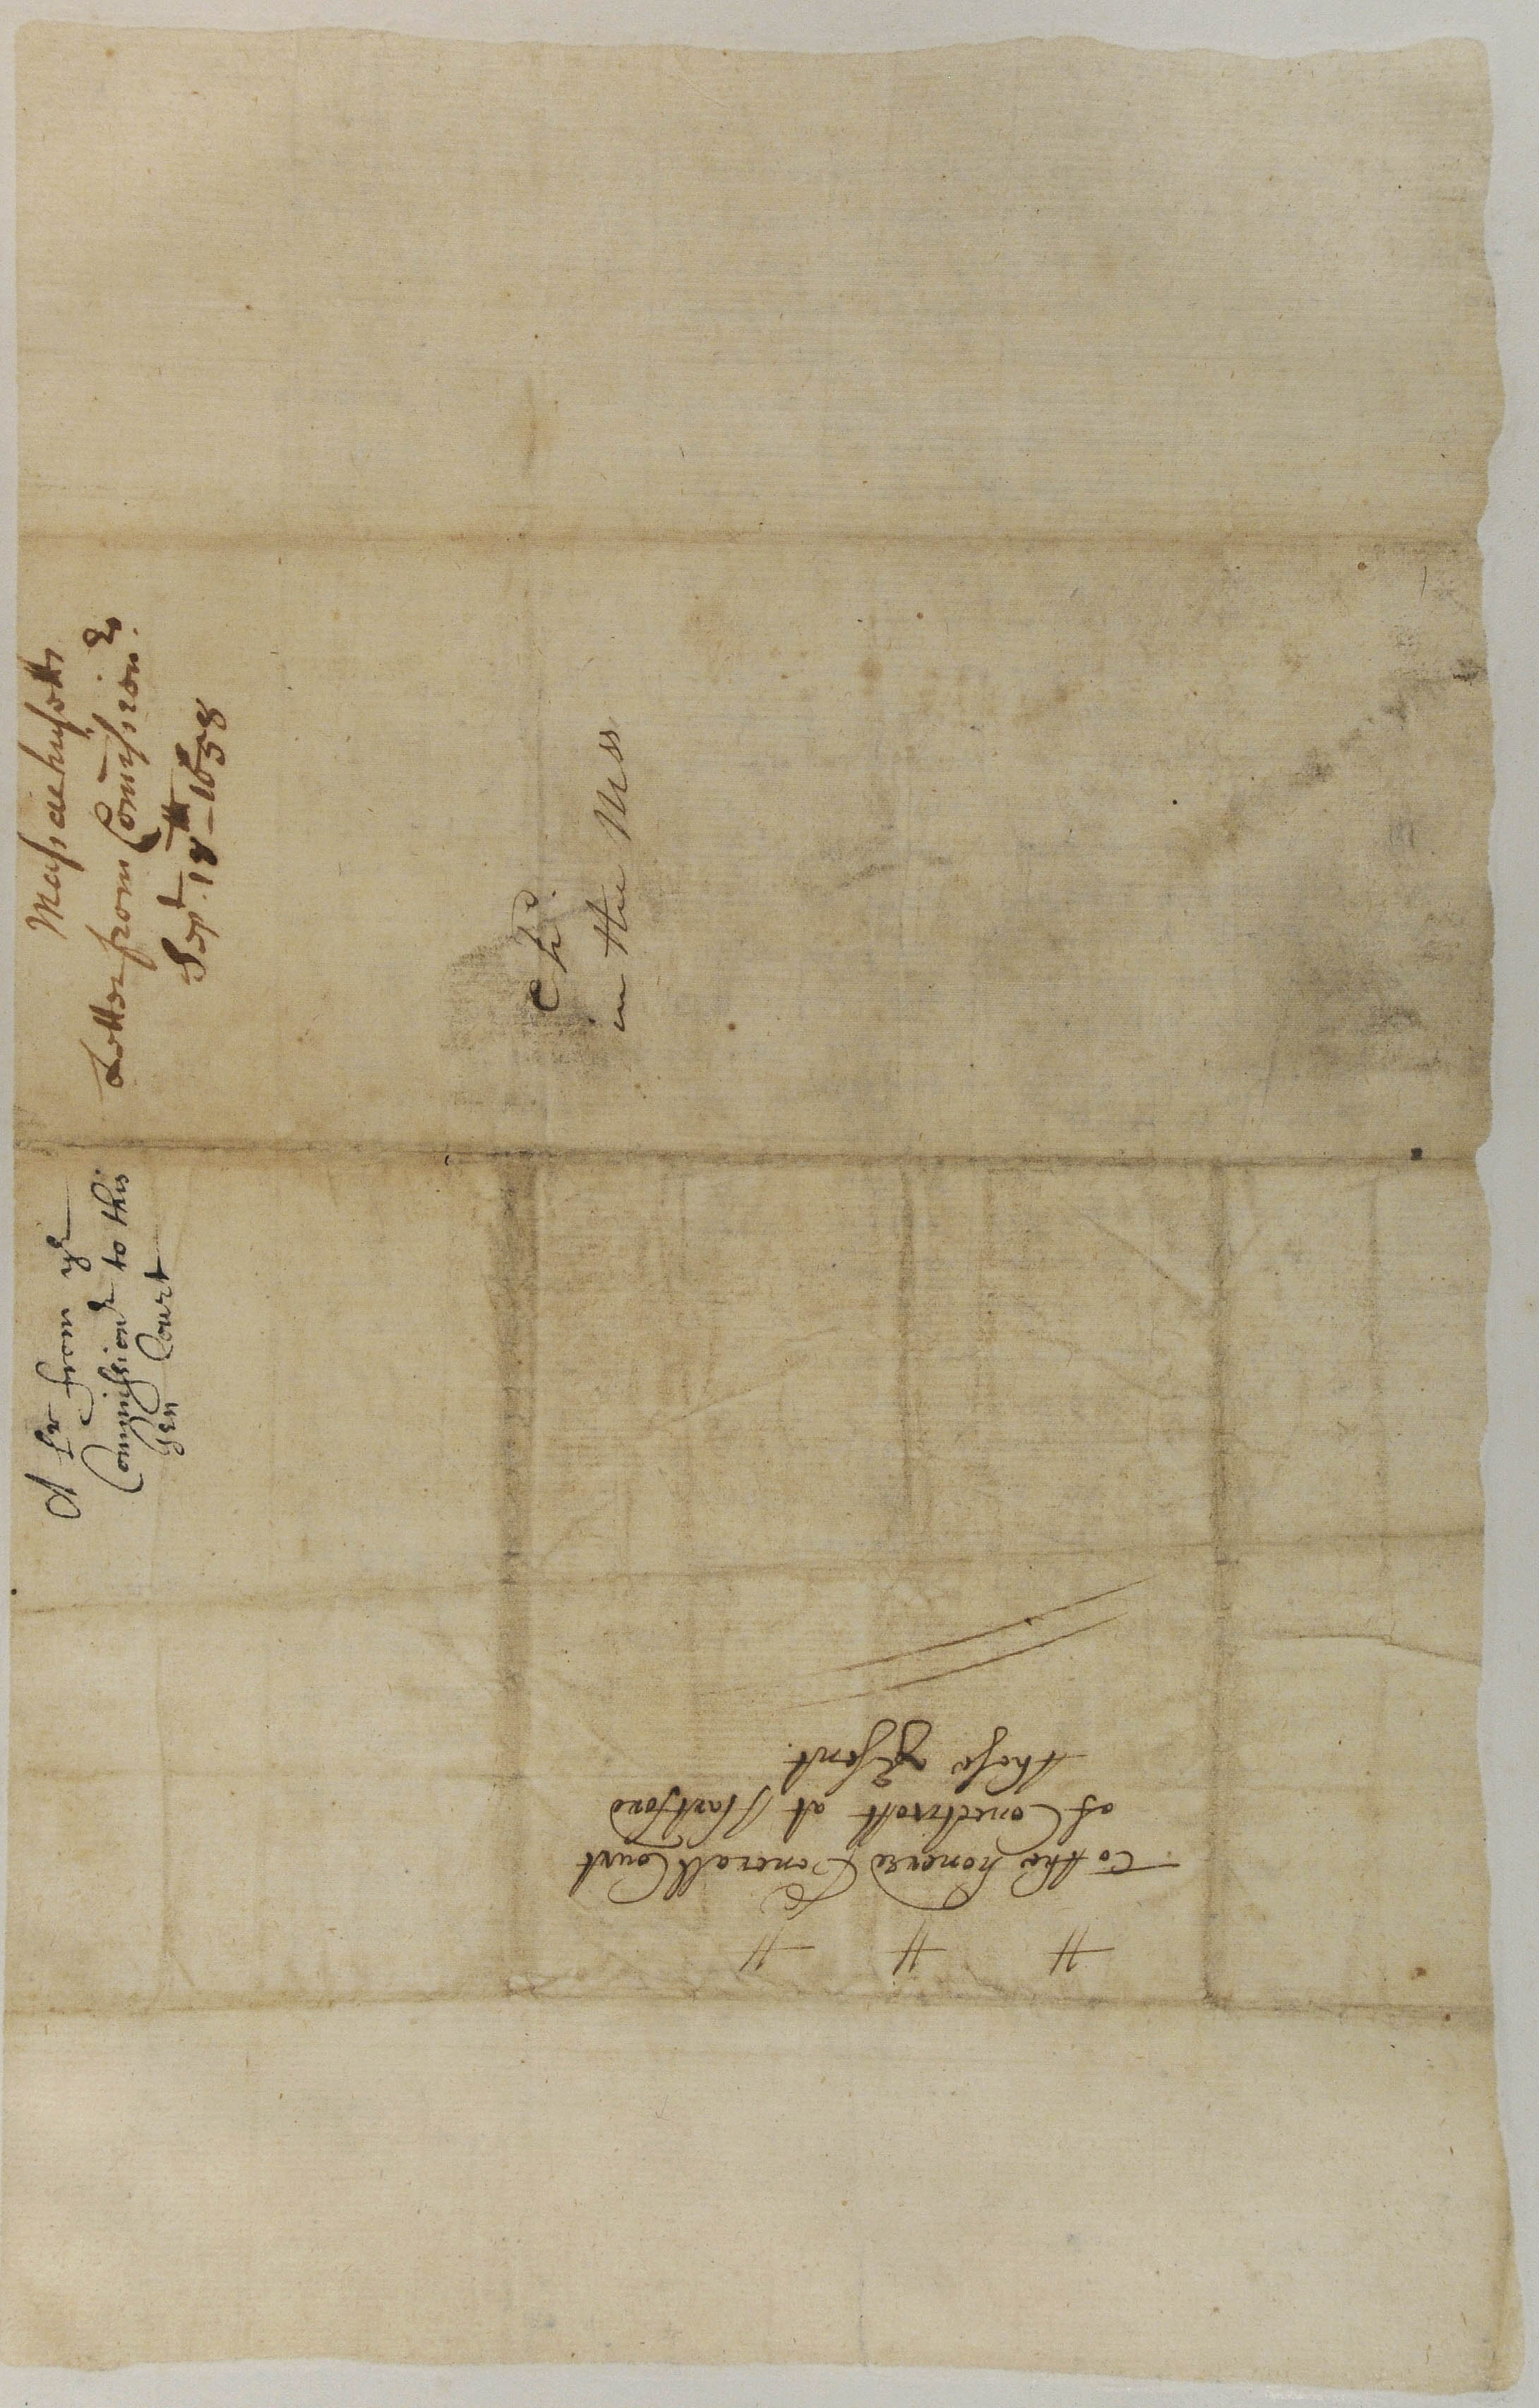 Massachusetts
Letter from Com̄ission.rs
Sept. 18th — 1658
A lr from ye
Commissionrs to this
Gen Court
Cpd.
in the Mss
To the honered Generall Court
of Conecticott at Hartford
these p̱sent.